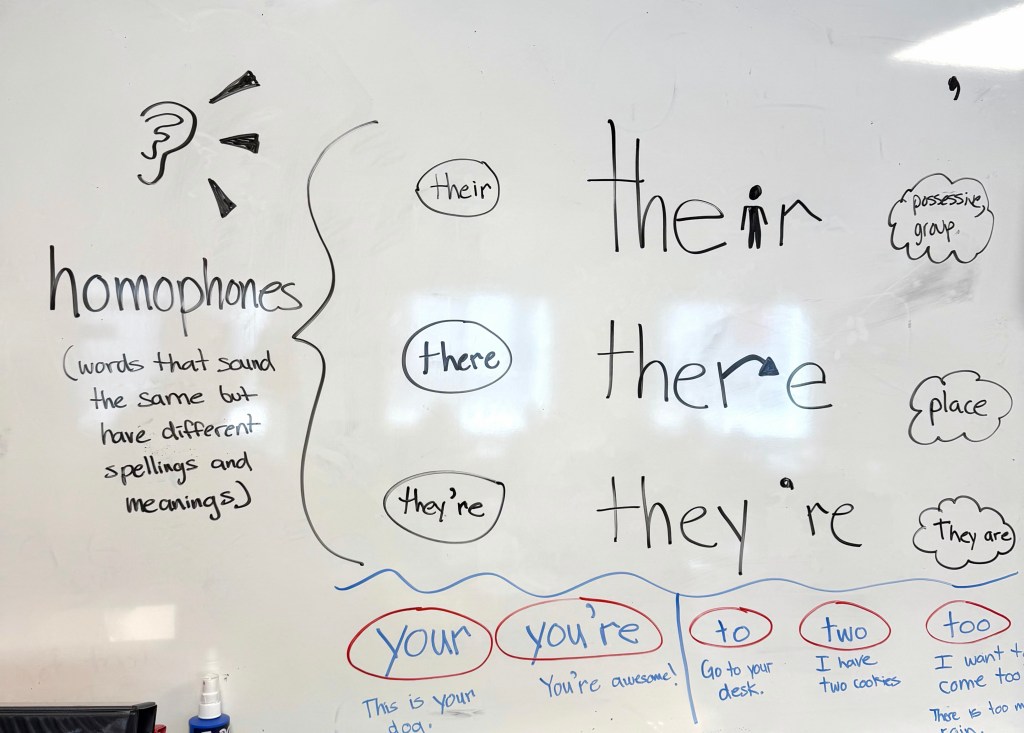 homophones
(words that sound
the same but
have different
spellings and
meanings)
their
their
possessive,
group.
there
there
place
they're
they're
They are
your
This is your
dog.
you're
You're awesome!
to
Go to your
desk.
two
I have
two cookies
too
I want
come too
There is too
rain.